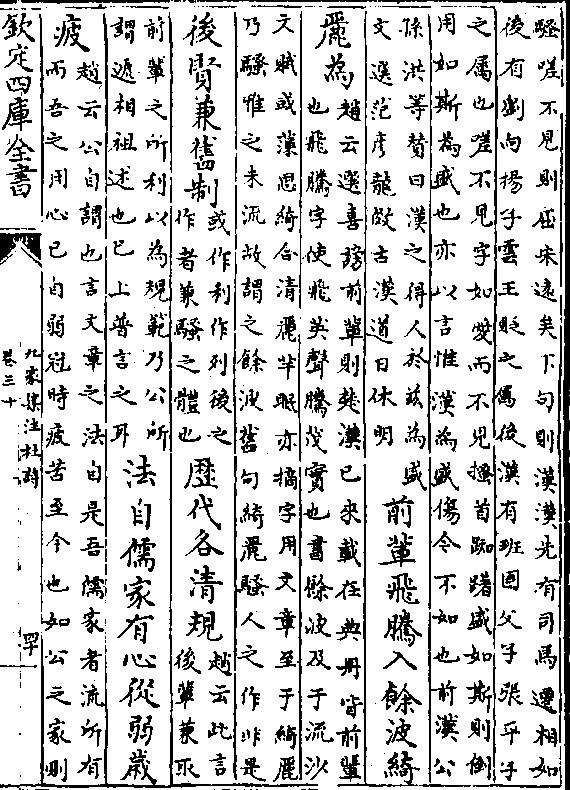 騷嗟不見則屈宋遠矣下句則漢漢先有司馬遷相如
後有劉向揚子雲王貶之儔後漢有班固父子張平子
之屬也嗟不見字如愛而不見搔首踟躇盛如斯則倒
用如斯為盛也亦以言惟漢為盛傷今不如也前漢公
孫洪等贊曰漢之得人於兹為盛
文選范彦龍傚古漢道日休明
前輩飛騰入餘波綺
麗為
趙云選喜謗前輩則葬漢已來載在典册皆前輩
也飛騰字使飛英聲騰茂實也書餘波及于流沙
文賦或藻思綺合清麗芊眠亦摘字用文章至于綺麗
乃騷雅之末流故謂之餘波舊句綺麗騷人之作非是
後賢兼舊制
或作利作列後之
作者兼騷之體也
歴代各清規
趙云此言
後輩兼取
前輩之所利以為規範乃公所
謂遞相祖述也已上普言之耳
法自儒家有心從弱歲
疲
趙云公自謂也言文章之法自是吾儒家者流所有
而吾之用心已自弱冠時疲苦至今也如公之家則
欽定四庫全書
九家集注杜詩
卷三十
四十